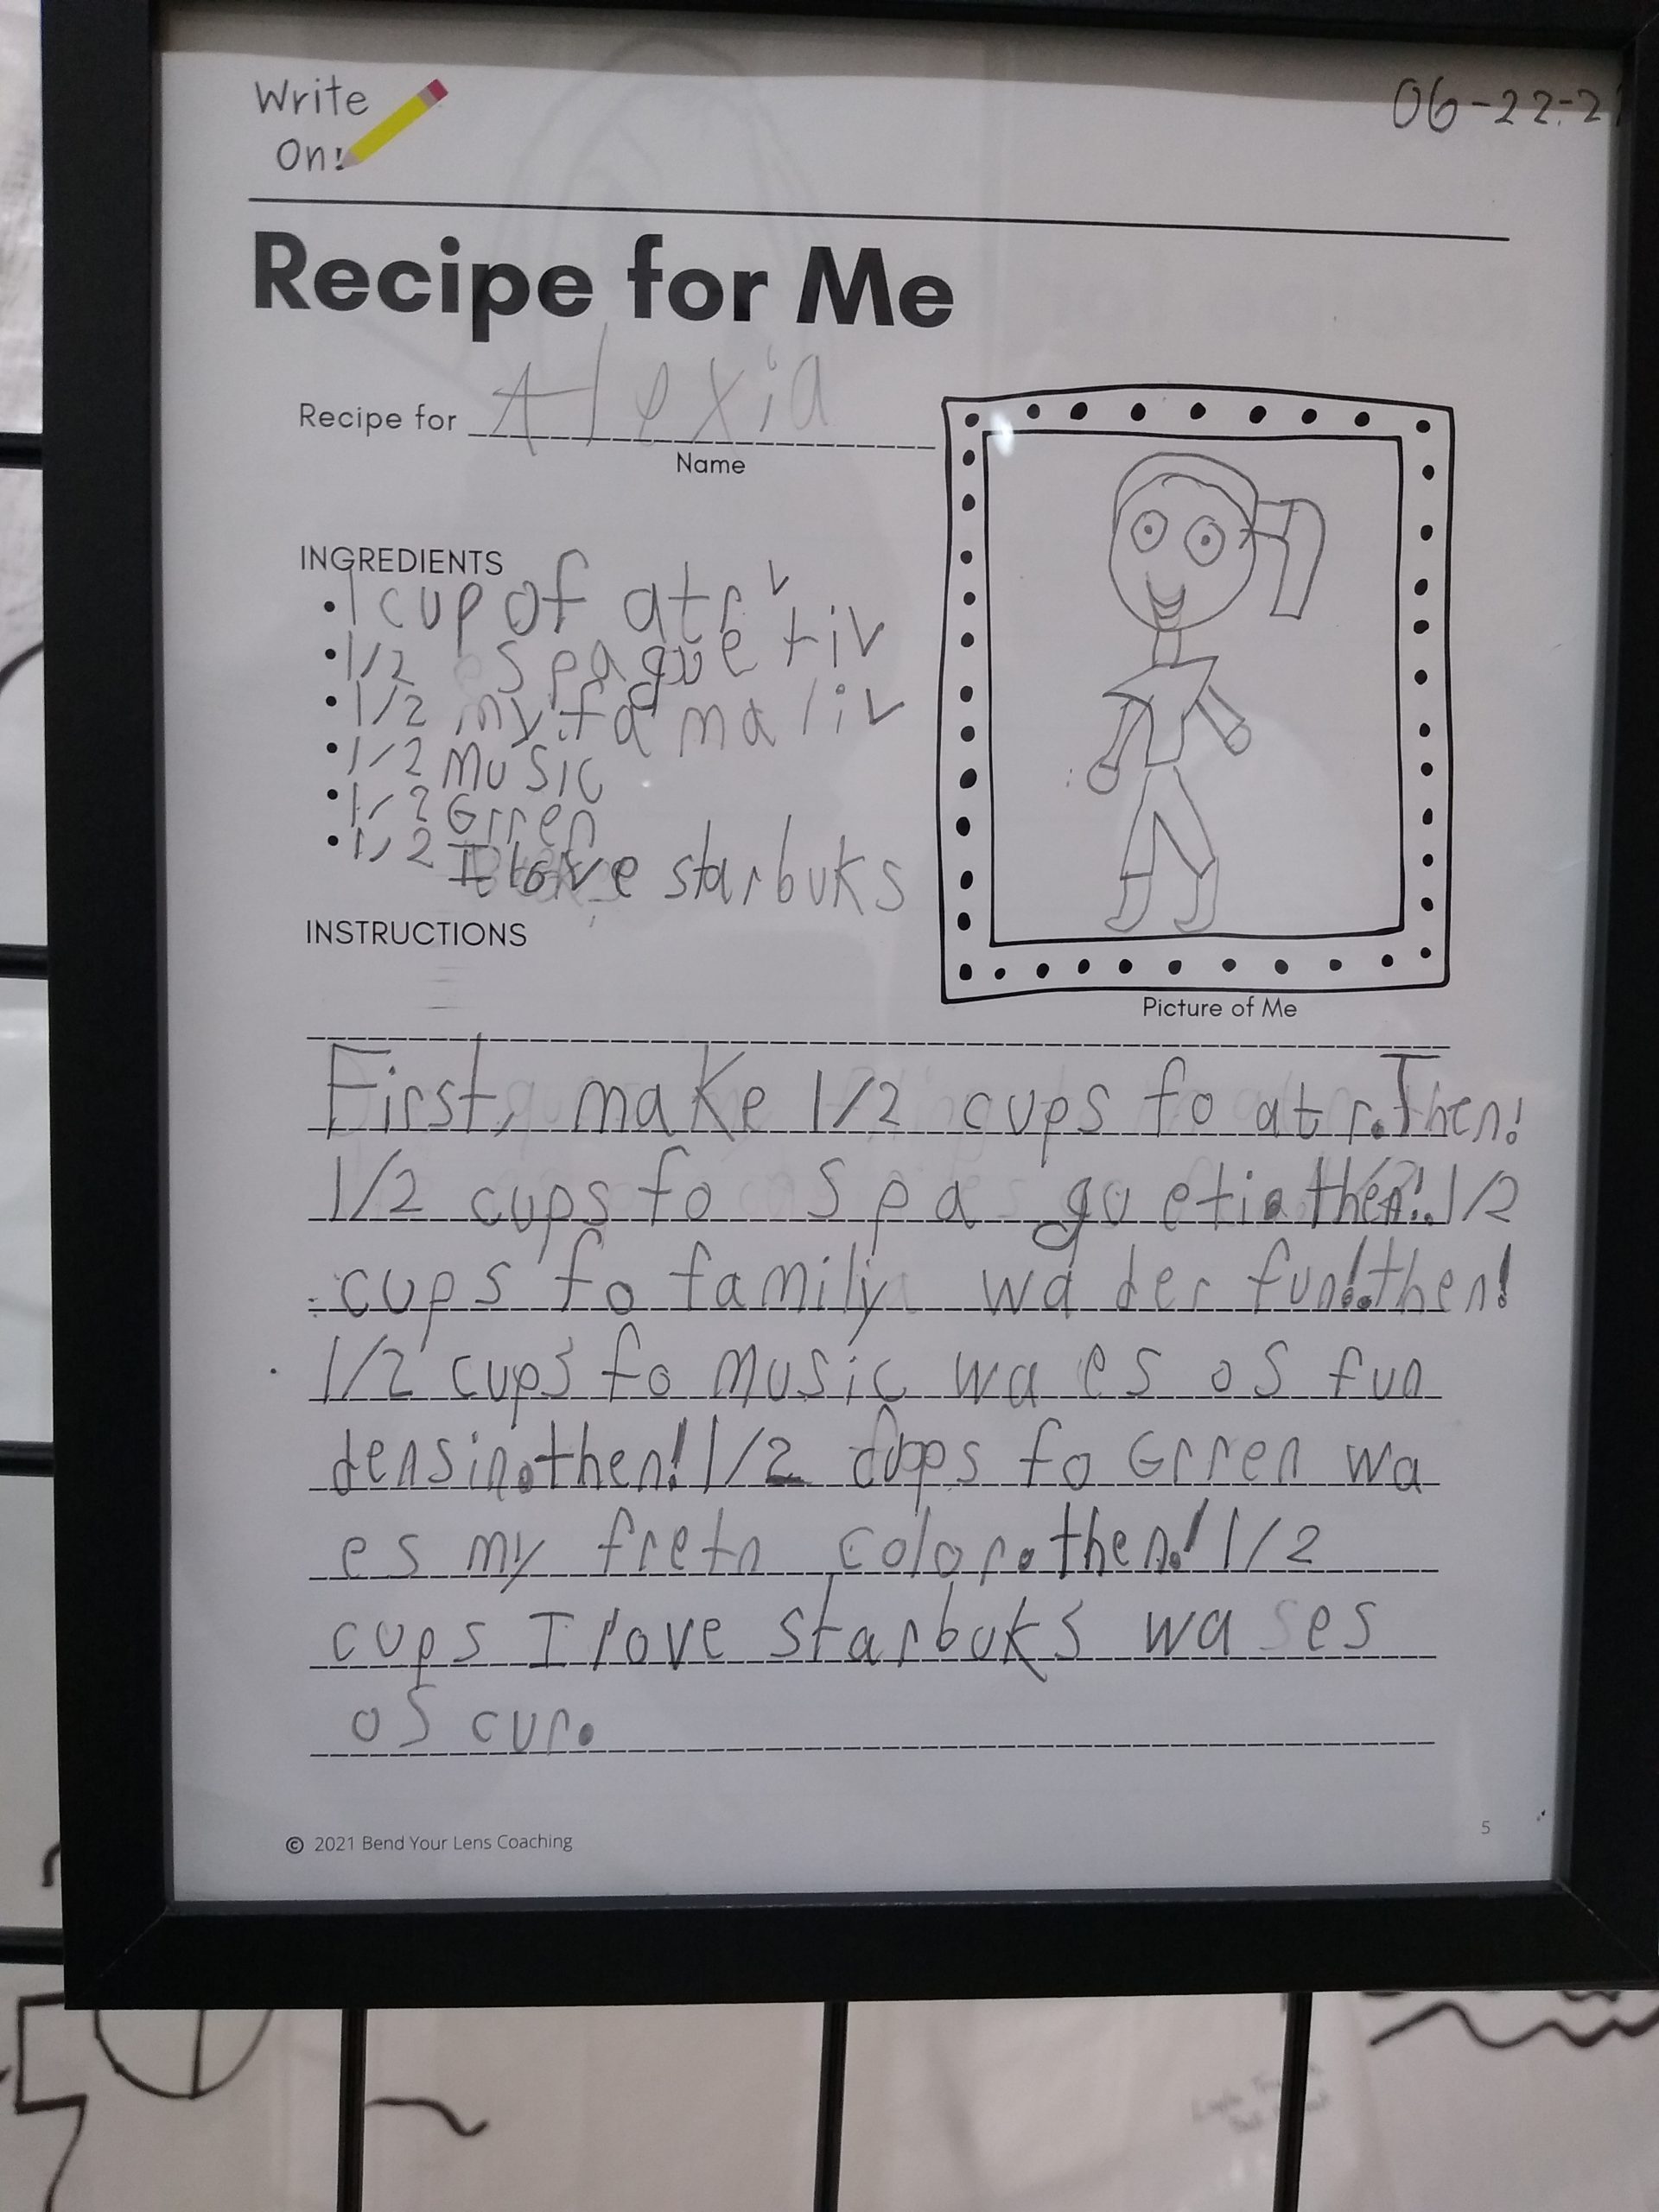 Write
On!
06-22-21
Recipe for Me
Recipe for Alexia
Name
INGREDIENTS
1 cup of atr
1/2 spagueti
1/2 my famali
1/2 music
1/2 Grren
1/2 I love starbuks
INSTRUCTIONS
Picture of Me
First, make 1/2 cups fo atr. Then!
1/2 cups fo spagueti. then! 1/2
cups fo family wa der fun! then!
1/2 cups fo music wa es os fun
densin. then! 1/2 cops fo Grren wa
es my fretn color. then! 1/2
cups I love starbuks wa es
os cur.
© 2021 Bend Your Lens Coaching
5